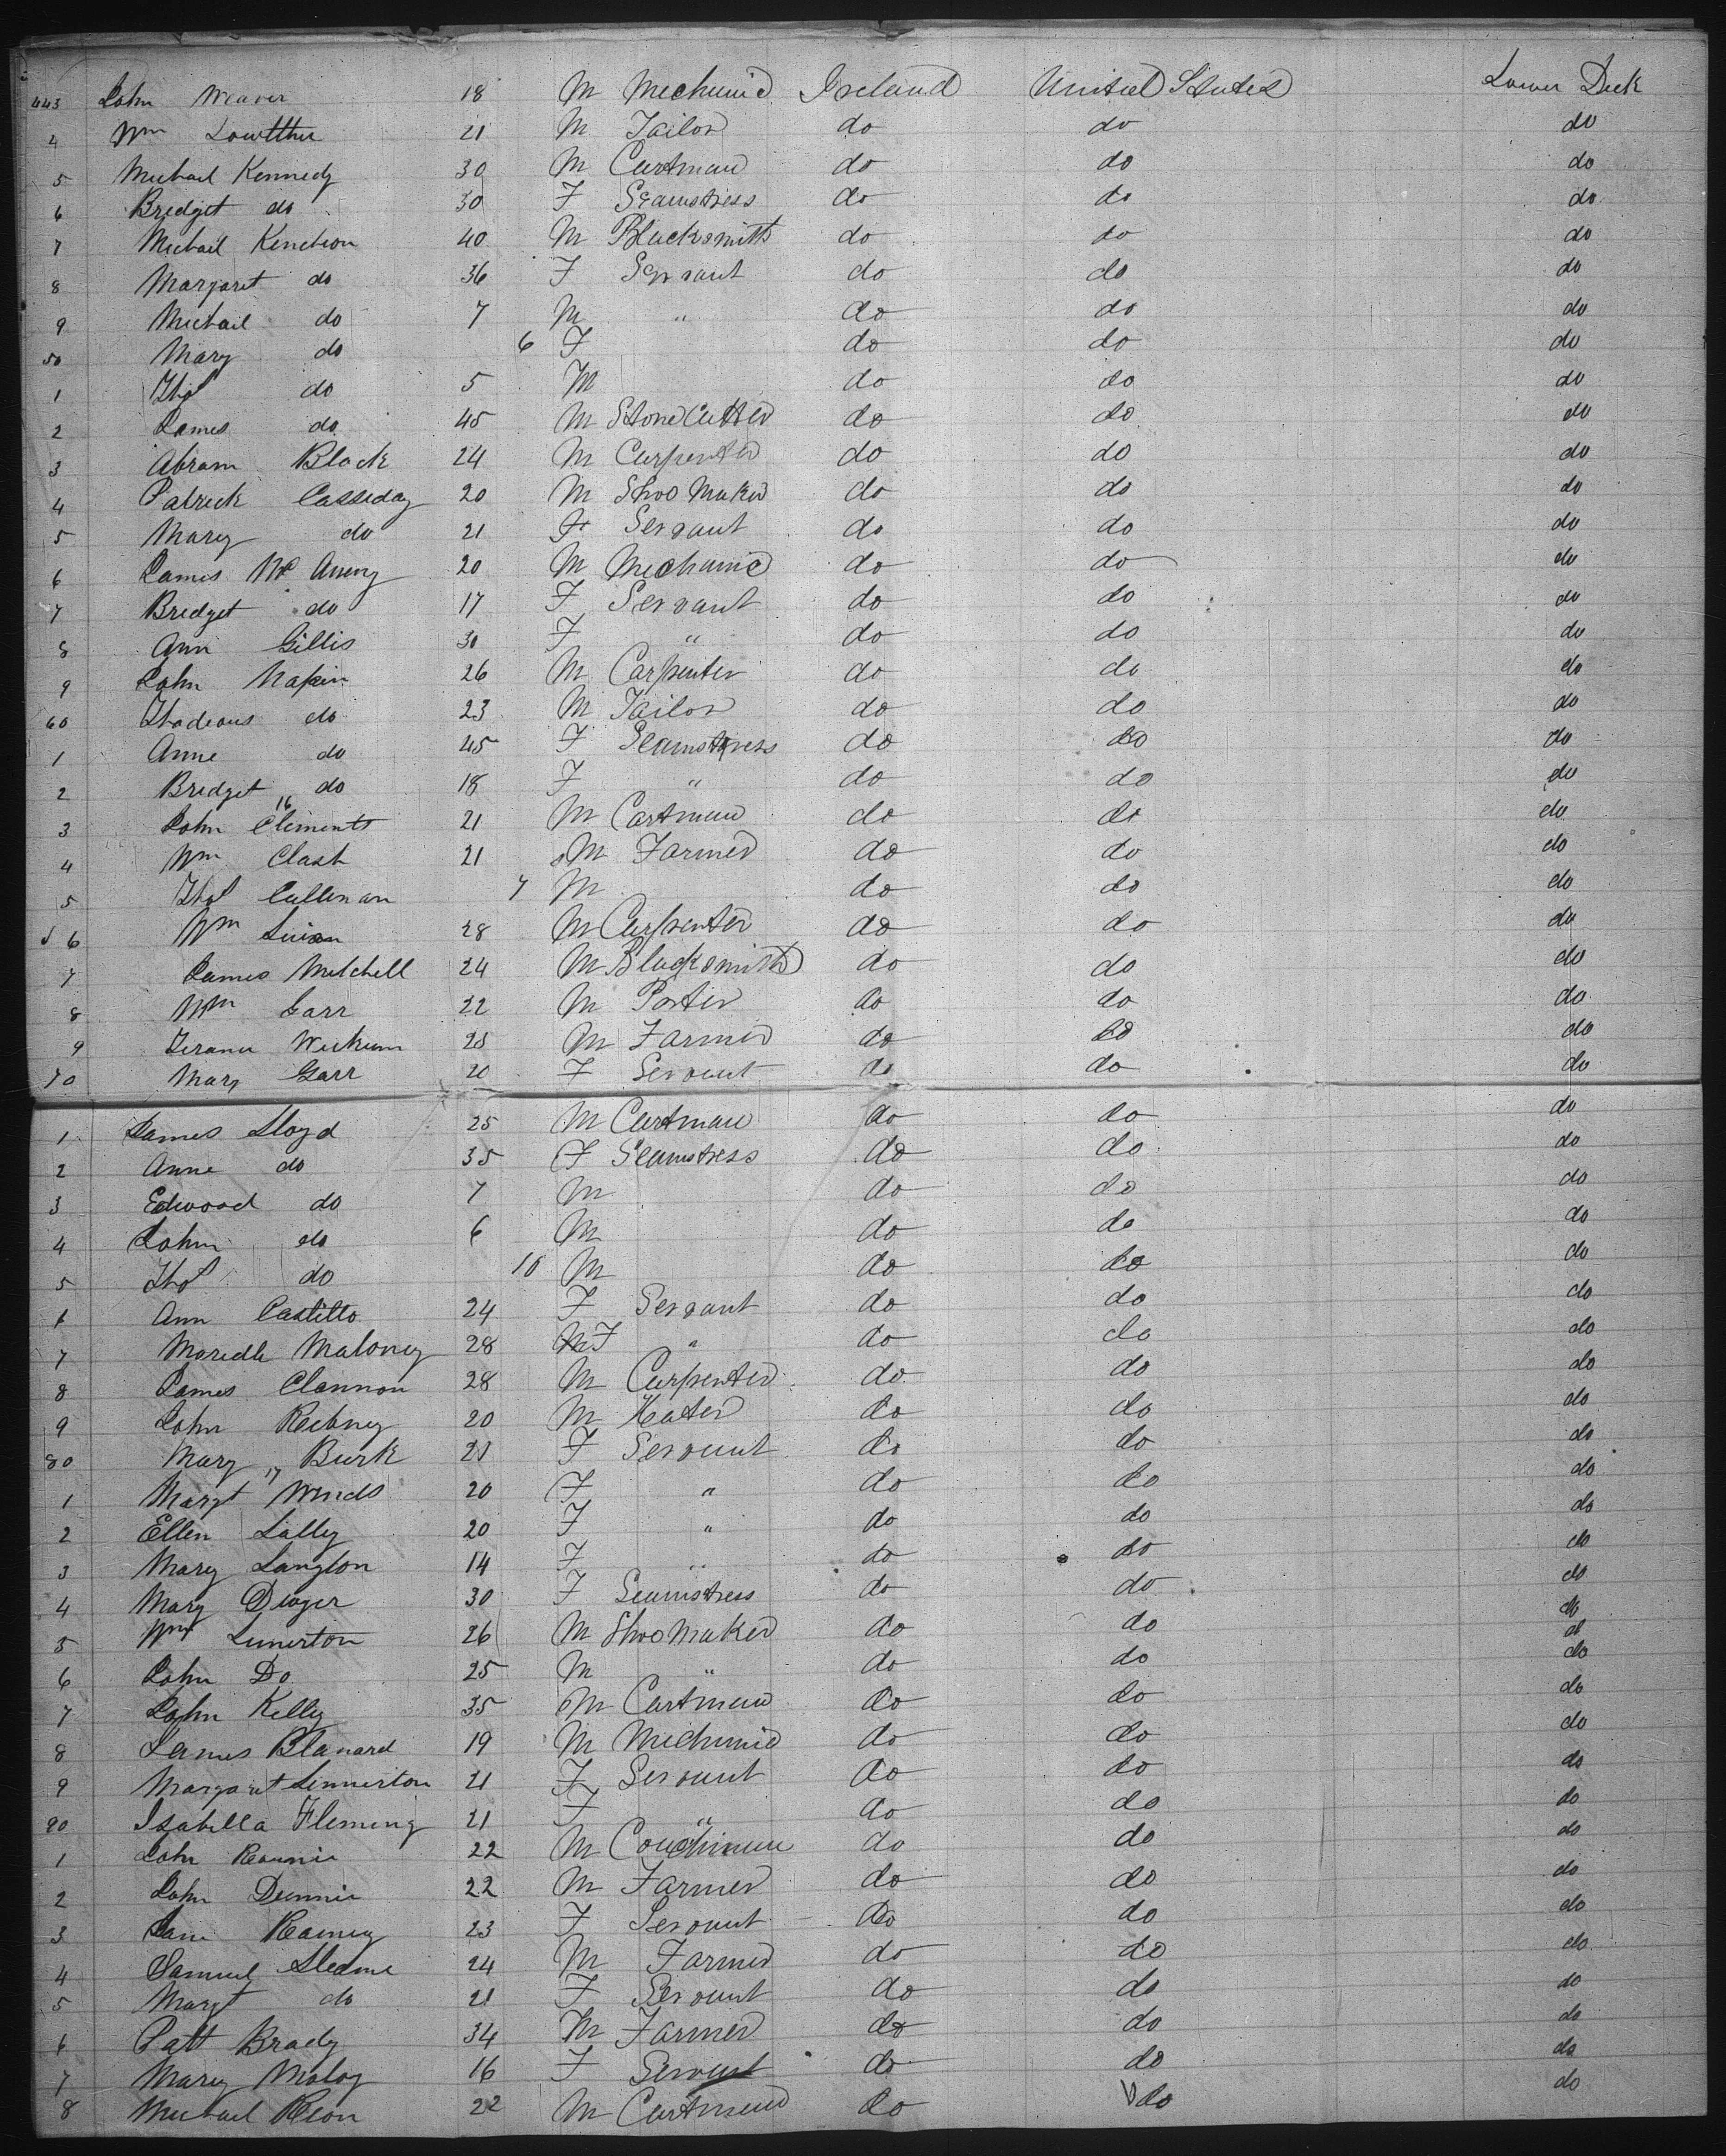 443 John Weaver 18 M Mechanic Ireland United States Lower Deck
4 Wm Lowtther 21 M Tailor do do do
5 Michael Kennedy 30 M Cartman do do do
6 Bridget do 30 F Seamstress do do do
7 Michael 40 M Blacksmith do do do
8 Margaret do 36 F Servant do do do
9 Michail do 7 M " do do do
50 Mary do 6 F do do do
1 Thos do 5 M do do do
2 James do 45 M Stone Cutter do do do
3 Abram Black 24 M Carpenter do do do
4 Patrick Casseday 20 M Shoo Maker do do do
5 Mary do 21 F Servant do do do
6 James Mc 20 M Mechanic do do do
7 Bridget do 17 F Servant do do do
8 Ann Gillis 30 F " do do do
9 John Napin 26 M Carpenter do do do
60 Thadeous do 23 M Tailor do do do
1 Anne do 45 F Seamstress do do do
2 Bridget do 18 F " do do do
16
3 John Clements 21 M Cartman do do do
4 Wm Clash 21 M Farmer do do do
5 Thos Cullenan 7 M do do do
6 Wm 28 M Carpenter do do do
7 James Mitchell 24 M Blacksmith do do do
8 Wm Garr 22 M Porter do do do
9 25 M Farmer do do do
70 Mary Garr 20 F Servant do do do
1 James Lloyd 25 M Cartman do do do
2 Anne do 35 F Seamstress do do do
3 Edwoard do 7 M do do do
4 John do 6 M do do do
5 Thos do 10 M do do do
6 Ann Castillo 24 F Servant do do do
7 Maloney 28 F " do do do
8 James Clannon 28 M Carpenter do do do
9 John 20 M Hater do do do
80 Mary Burk 21 F Servant do do do
17
1 Margt Winds 20 F " do do do
2 Ellen Lally 20 F " do do do
3 Mary Langton 14 F " do do do
4 Mary Dwyer 30 F Seamstress do do do
5 Wm Linerton 26 M Shoo Maker do do do
6 John Do 25 M " do do do
7 John Kelly 35 M Cartman do do do
8 James Blanard 19 M Mechanic do do do
9 Margaret Linnerton 21 F Servant do do do
90 Isabella Fleming 21 F " do do do
1 John 22 M Coachman do do do
2 John Dunnie 22 M Farmer do do do
3 Jane 23 F Servant do do do
4 Samuel 24 M Farmer do do do
5 Margt do 21 F Servant do do do
6 Patt Brady 34 M Farmer do do do
7 Mary Maloy 16 F Servant do do do
8 Michael 22 M Cartman do do do